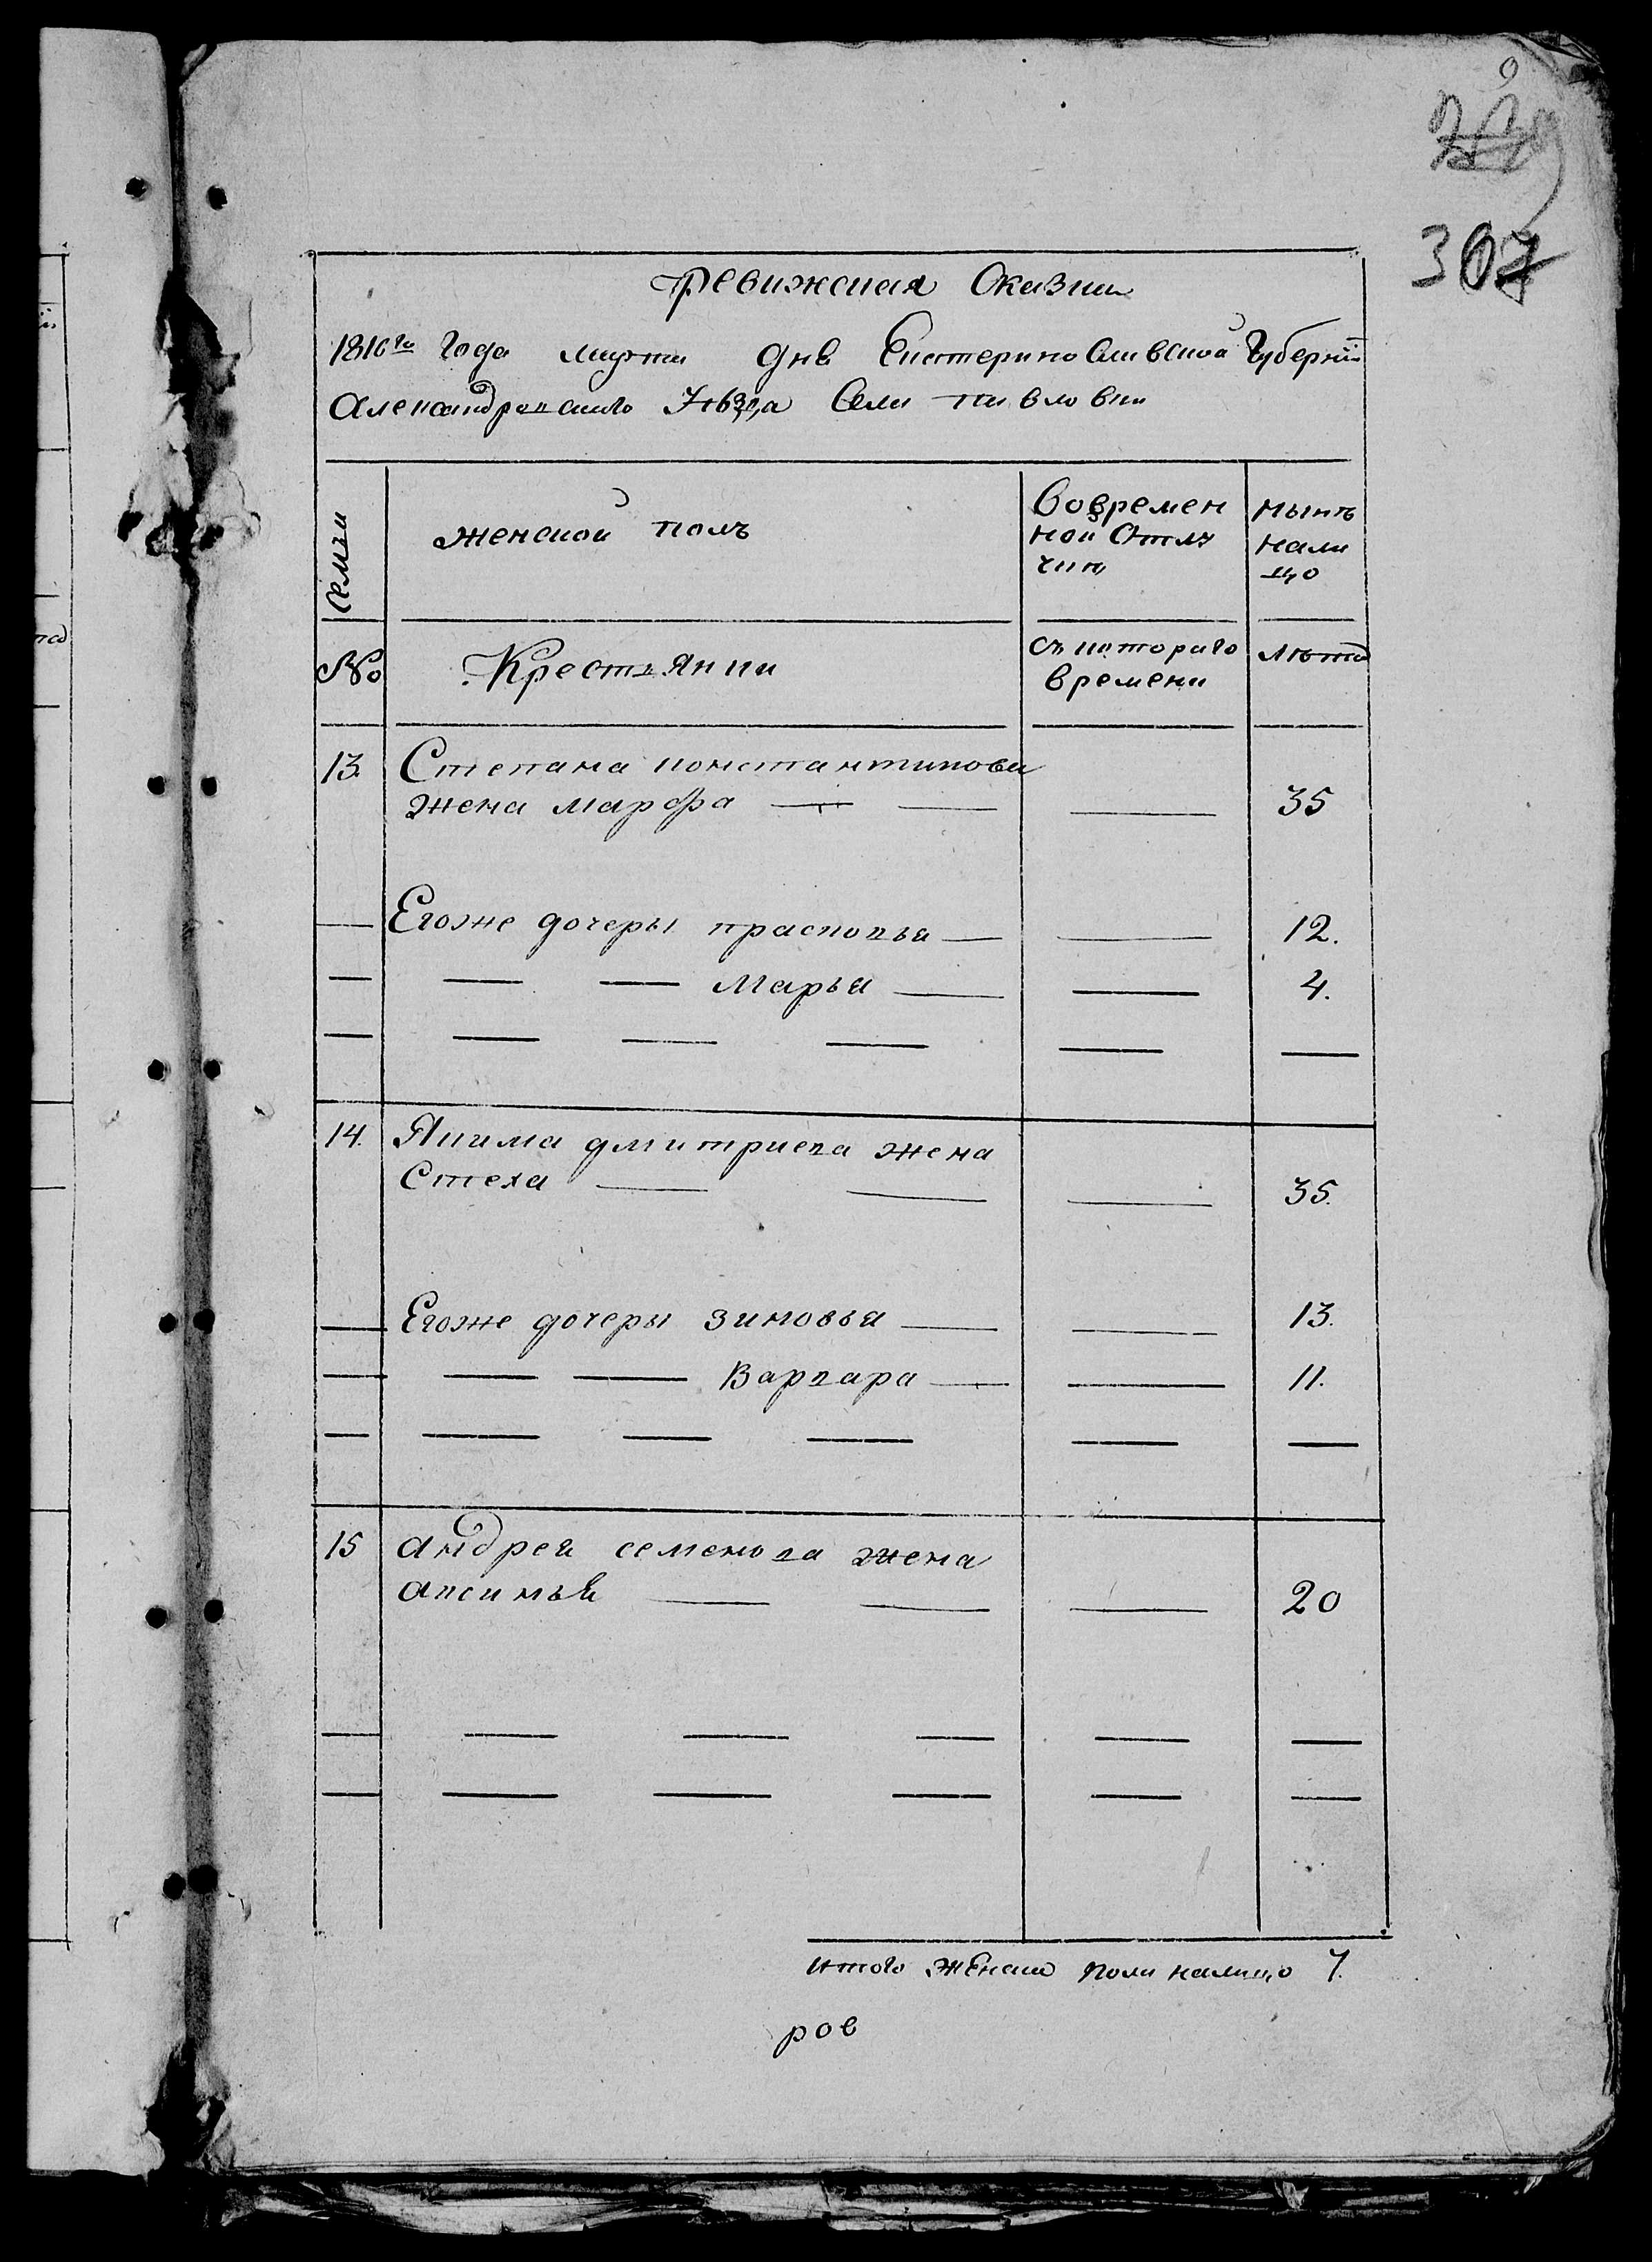 9
307
Ревижская Сказка
1816го года марта дня Екатеринославской Губернїи
Александровского Уѣзда Села павловки
Семьи
женской полъ
Вовремен
ной Отлу
чки
нынѣ
нали
цо
№
Крестьянки
съ котораго
времени
лѣта
13. Степана константинова
жена марфа — — — 35
— Егоже дочеры прасковья — — 12.
— — — Марья — — 4.
— — — — — —
14. Якима дмитриева жена
стеха — — — 35.
— Егоже дочеры зиновья — — 13.
— — — Варвара — — 11.
— — — — — —
15 андрея семенова жена
аксинья — — — 20
— — — — — —
— — — — — —
итого женска пола налицо 7.
ров